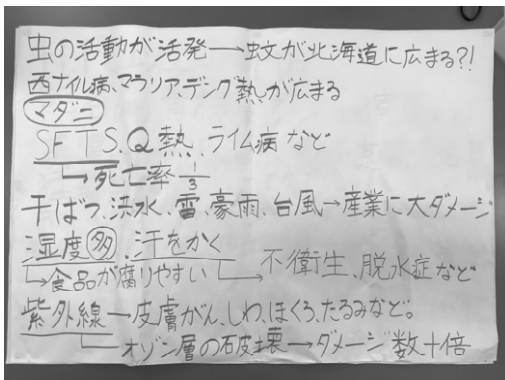 虫の活動が活発→蚊文が北海道に広まる?!
西ナイル病、マラリア、デング熱が広まる
マダニ
SFTS、Q熱、ライム病など
→死亡率1/3
干ばつ、洪水、雷、豪雨、台風→産業に大ダメージ
湿度多 汗をかく
→食品が腐りやすい →不衛生、脱水症など
紫外線→皮膚がん、しわ、ほくろ、たるみなど。
オゾン層の破壊→ダメージ数十倍